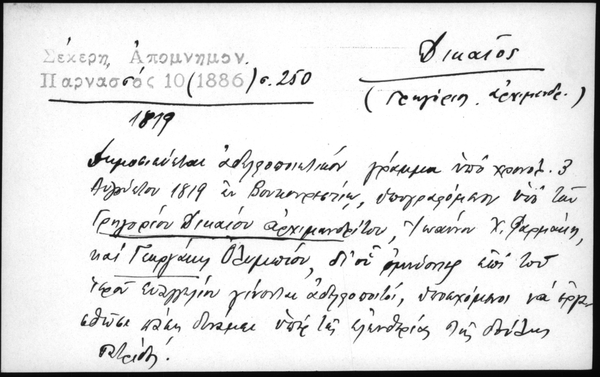 Σέκερη, Ἀπομνημον.
Παρνασσός 10 (1886) σ. 250
Δικαῖος
(Γρηγόριος, ἀρχιμανδρ.)
1819
Δημοσιεύεται ἀδελφοποιητικόν γράμμα ὑπό χρονολ. 3
Αὐγούστου 1819 ἐν Βουκουρεστίῳ, ὑπογραφόμενον ὑπό τῶν
Γρηγορίου Δικαίου ἀρχιμανδρίτου, Ἰωάννου Χ. Φαρμάκη,
καί Γεωργάκη Ὀλυμπίου, δι' οὗ ὀμνύοντες ἐπί τοῦ
Ἱεροῦ Εὐαγγελίου γίνονται ἀδελφοποιτοί, ὑποσχόμενοι νά
πάσῃ δυνάμει ὑπέρ τῆς ἐλευθερίας τῆς δούλης
πατρίδος!